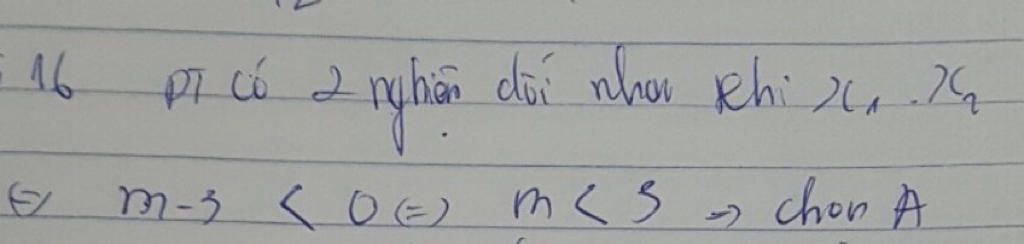 16 PT có 2 nghiệm đối nhau khi x₁.x₂
⇔ m-3 < 0 ⇔ m < 3 → chọn A